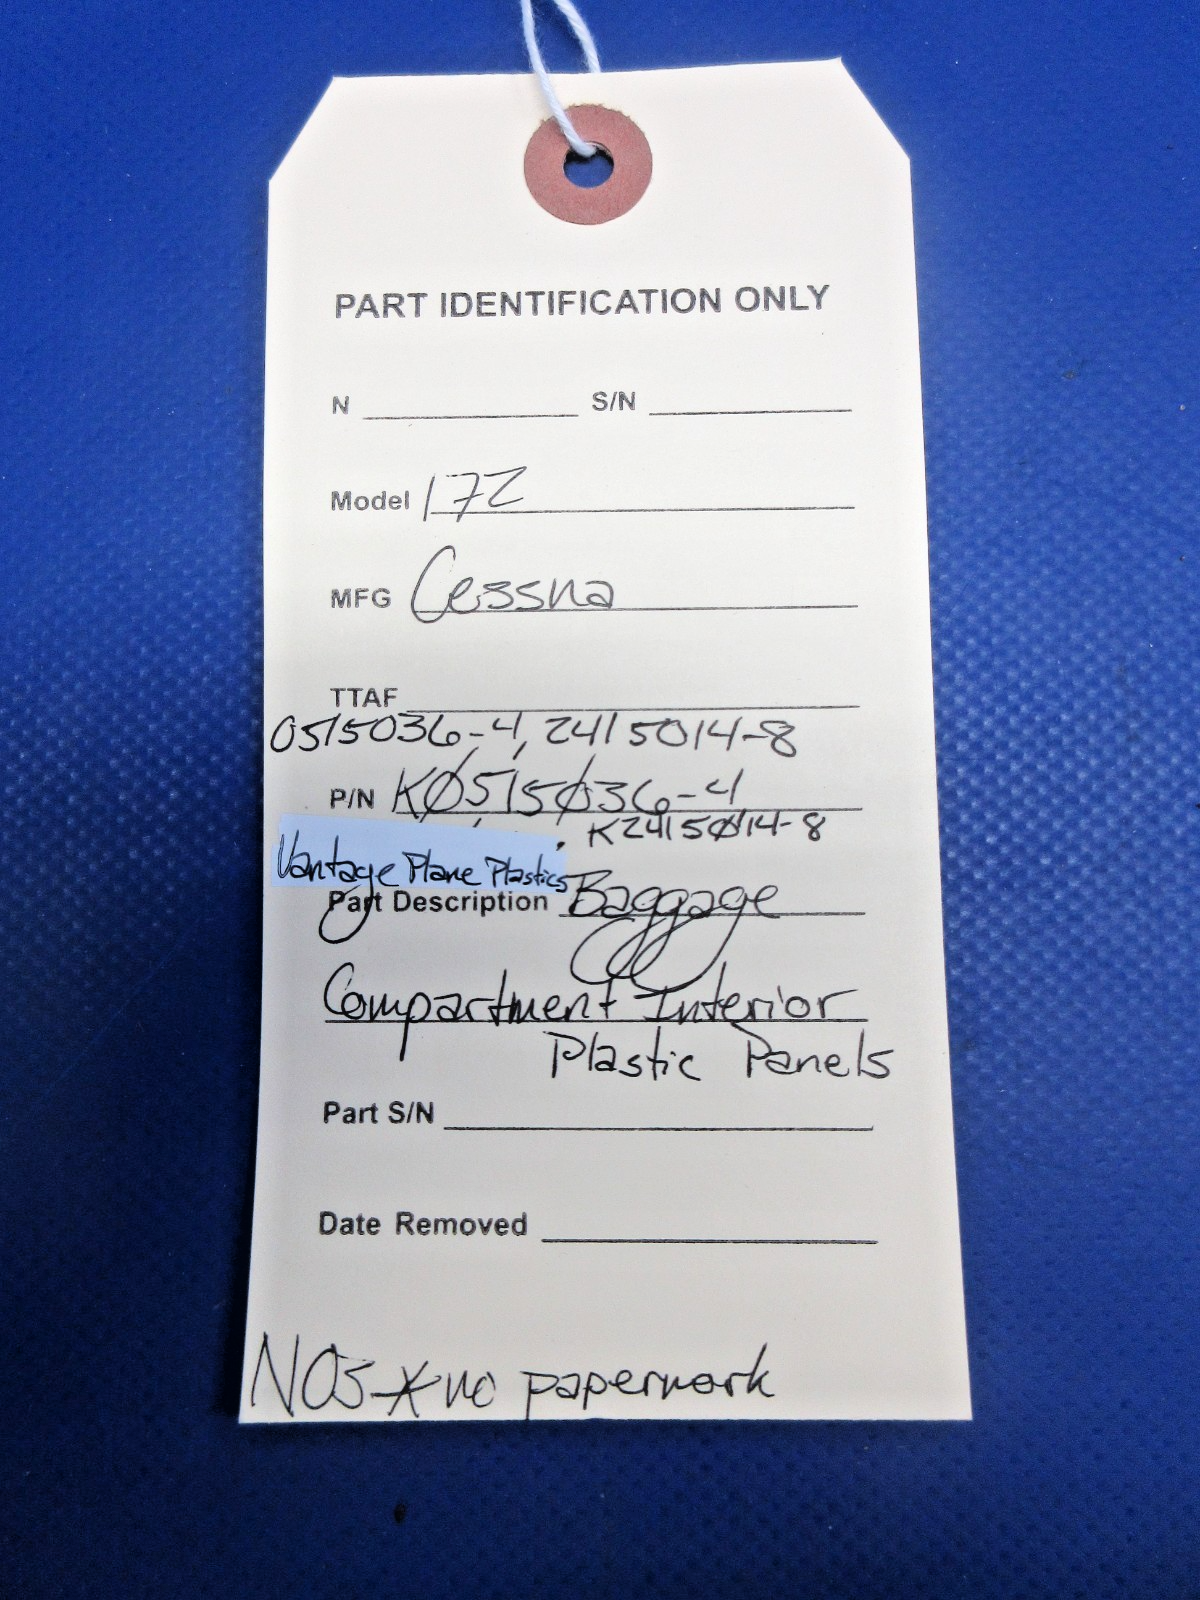 PART IDENTIFICATION ONLY
N S/N
Model 172
MFG Cessna
TTAF
0515036-4, 2415014-8
P/N KØ515Ø36-4
K2415Ø14-8
Vantage Plane Plastics
Part Description Baggage
Compartment Interior
Plastic Panels
Part S/N
Date Removed
NOS * no paperwork